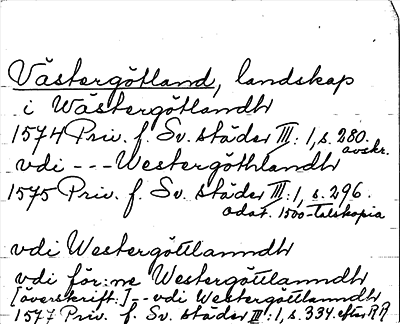 Västergötland, landskap
i Wästergötlandh
1574 Priv. f. Sv. städer III: 1, s. 280.
avskr.
vdi --- Westergöthlandh
1575 Priv. f. Sv. städer III: 1, s. 296.
odat. 1500-talskopia
vdi Westergöttlanndh
vdi för:ne Westergöttlanndh
[överskrift:] -- vdi Westergöttlanndh
1577 Priv. f. Sv. städer III: 1, s. 334. efter RR